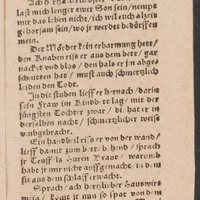 last mich lenger ewer Son sein/nempt
mir das leben nicht/ich wil euch alzeit
gehorsam sein/wo jr werdet bedürffen
mein.
Der Mörder kein erbarmung hett/
den Knaben riß er aus dem bett/gar
nacket vnd blos/den hals er jm abge-
schnitten hat/must auch schmertzlich
leiden den Todt.
In die stuben lieff er hernach/darin
sein Fraw im Kindbet lag/mit der
jüngsten Tochter zwar/die hat er in
derselben nacht/schmertzlicher weise
vmbgebracht.
Ein handbeil riß er von der wand/
lieff damit zum bette behend/sprach
je Teuffls Huren Braut/warumb
habt je mir nicht auffgemacht/in dem
sie aus dem schlaff erwacht.
Sprach/ach hertzlieber Hauswirt
mein/kompt jr nun so spat von dem